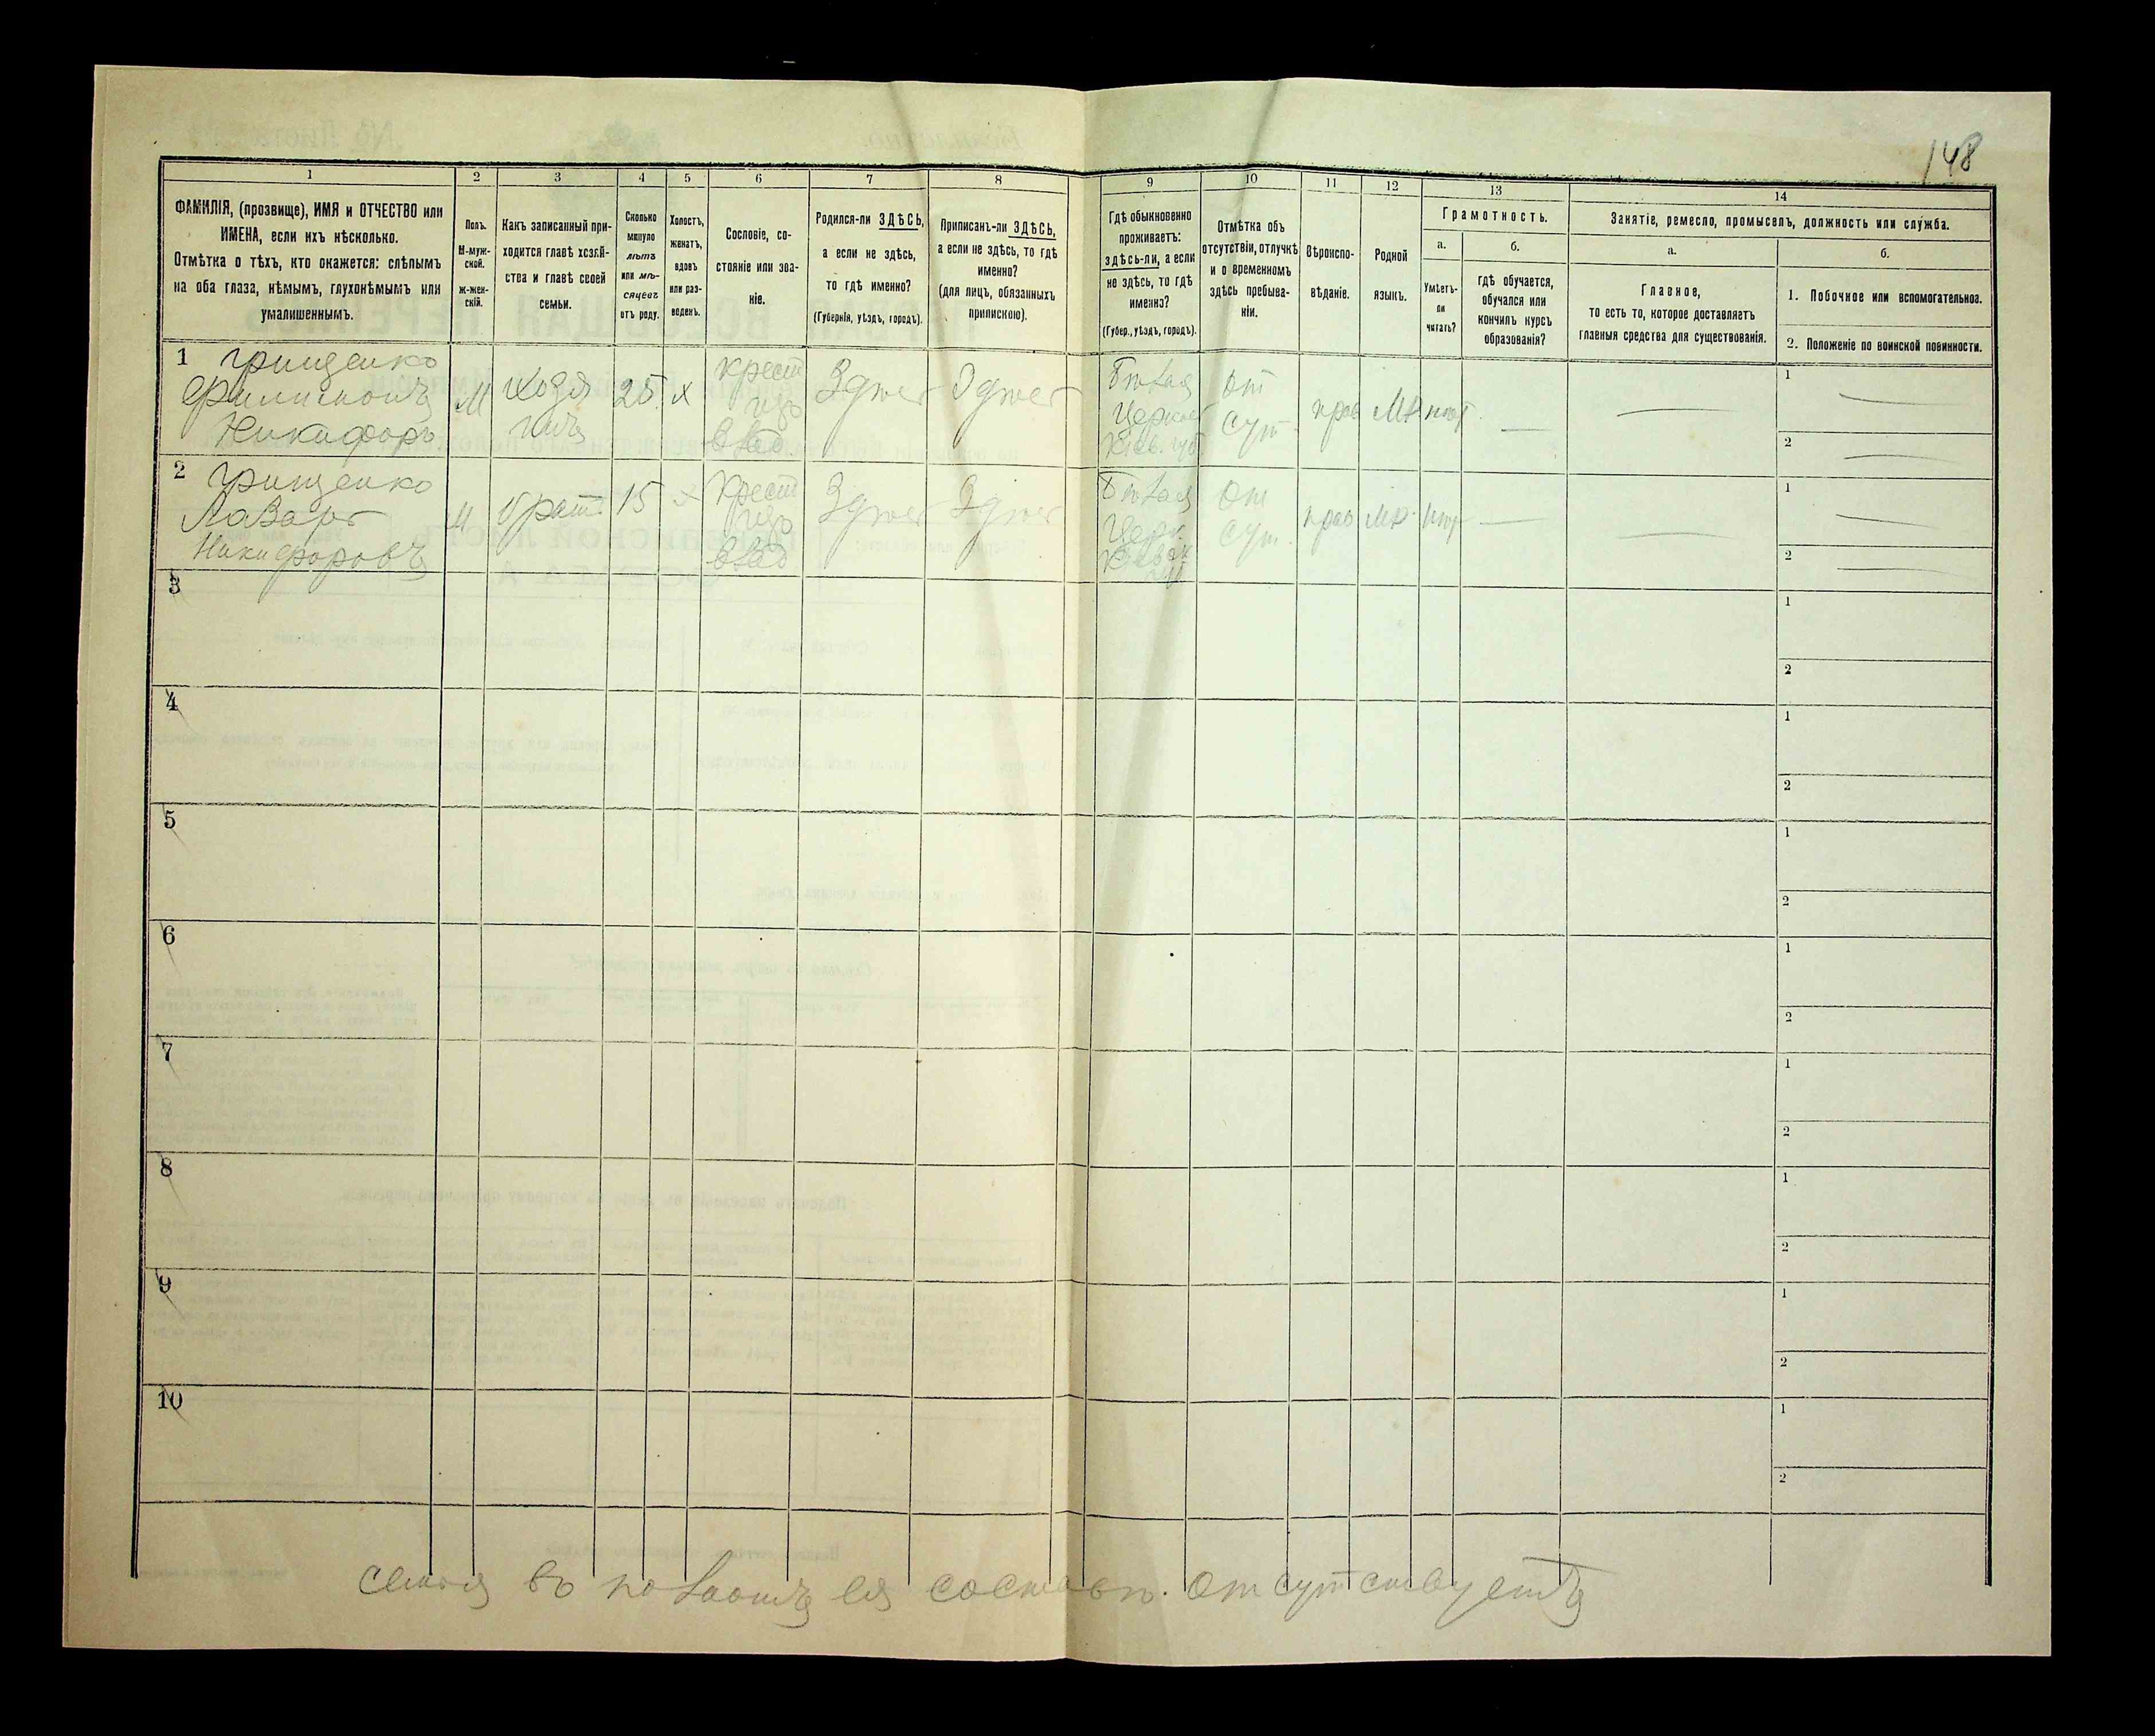 148
1 2 3 4 5 6 7 8 9 10 11 12 13 14
ФАМИЛІЯ, (прозвище), ИМЯ и ОТЧЕСТВО или
ИМЕНА, если ихъ нѣсколько.
Отмѣтка о тѣхъ, кто окажется: слѣпымъ
на оба глаза, нѣмымъ, глухонѣмымъ или
умалишеннымъ.
Полъ.
М-муж-
ской.
ж-жен-
скій.
Какъ записанный при-
ходится главѣ хозяй-
ства и главѣ своей
семьи.
Сколько
минуло
лѣтъ
или мѣ-
сяцевъ
отъ роду.
Холостъ,
женатъ,
вдовъ
или раз-
веденъ.
Сословіе, со-
стояніе или зва-
ніе.
Родился-ли ЗДѢСЬ,
а если не здѣсь,
то гдѣ именно?
(Губернія, уѣздъ, городъ).
Приписанъ-ли ЗДѢСЬ,
а если не здѣсь, то гдѣ
именно?
(для лицъ, обязанныхъ
припискою).
Гдѣ обыкновенно
проживаетъ:
здѣсь-ли, а если
не здѣсь, то гдѣ
именно?
(Губер., уѣздъ, городъ).
Отмѣтка объ
отсутствіи, отлучкѣ
и о временномъ
здѣсь пребыва-
ніи.
Вѣроиспо-
вѣданіе.
Родной
языкъ.
Грамотность.
а.
Умѣетъ-
ли
читать?
б.
гдѣ обучается,
обучался или
кончилъ курсъ
образованія?
Занятіе, ремесло, промыселъ, должность или служба.
а.
Главное,
то есть то, которое доставляетъ
главныя средства для существованія.
б.
1. Побочное или вспомогательное.
2. Положеніе по воинской повинности.
1 Грищенко
Филимонъ
Никифоръ
М
Хозя
инъ
25
х
крест
изъ
влад.
Здѣсь
Здѣсь
Бѣлая
Церковь
Кіев. губ.
От
сут.
прав
МР
нѣт
1
2
2 Грищенко
Лазарь
Никифоровъ
М
брат
15
х
Крест
изъ
влад
Здѣсь
Здѣсь
Бѣлая
Церк
От
сут.
прав
МР.
нѣт
1
2
3
1
2
4
1
2
5
1
2
6
1
2
7
1
2
8
1
2
9
1
2
10
1
2
семья въ полномъ ея составѣ. отсутствуетъ